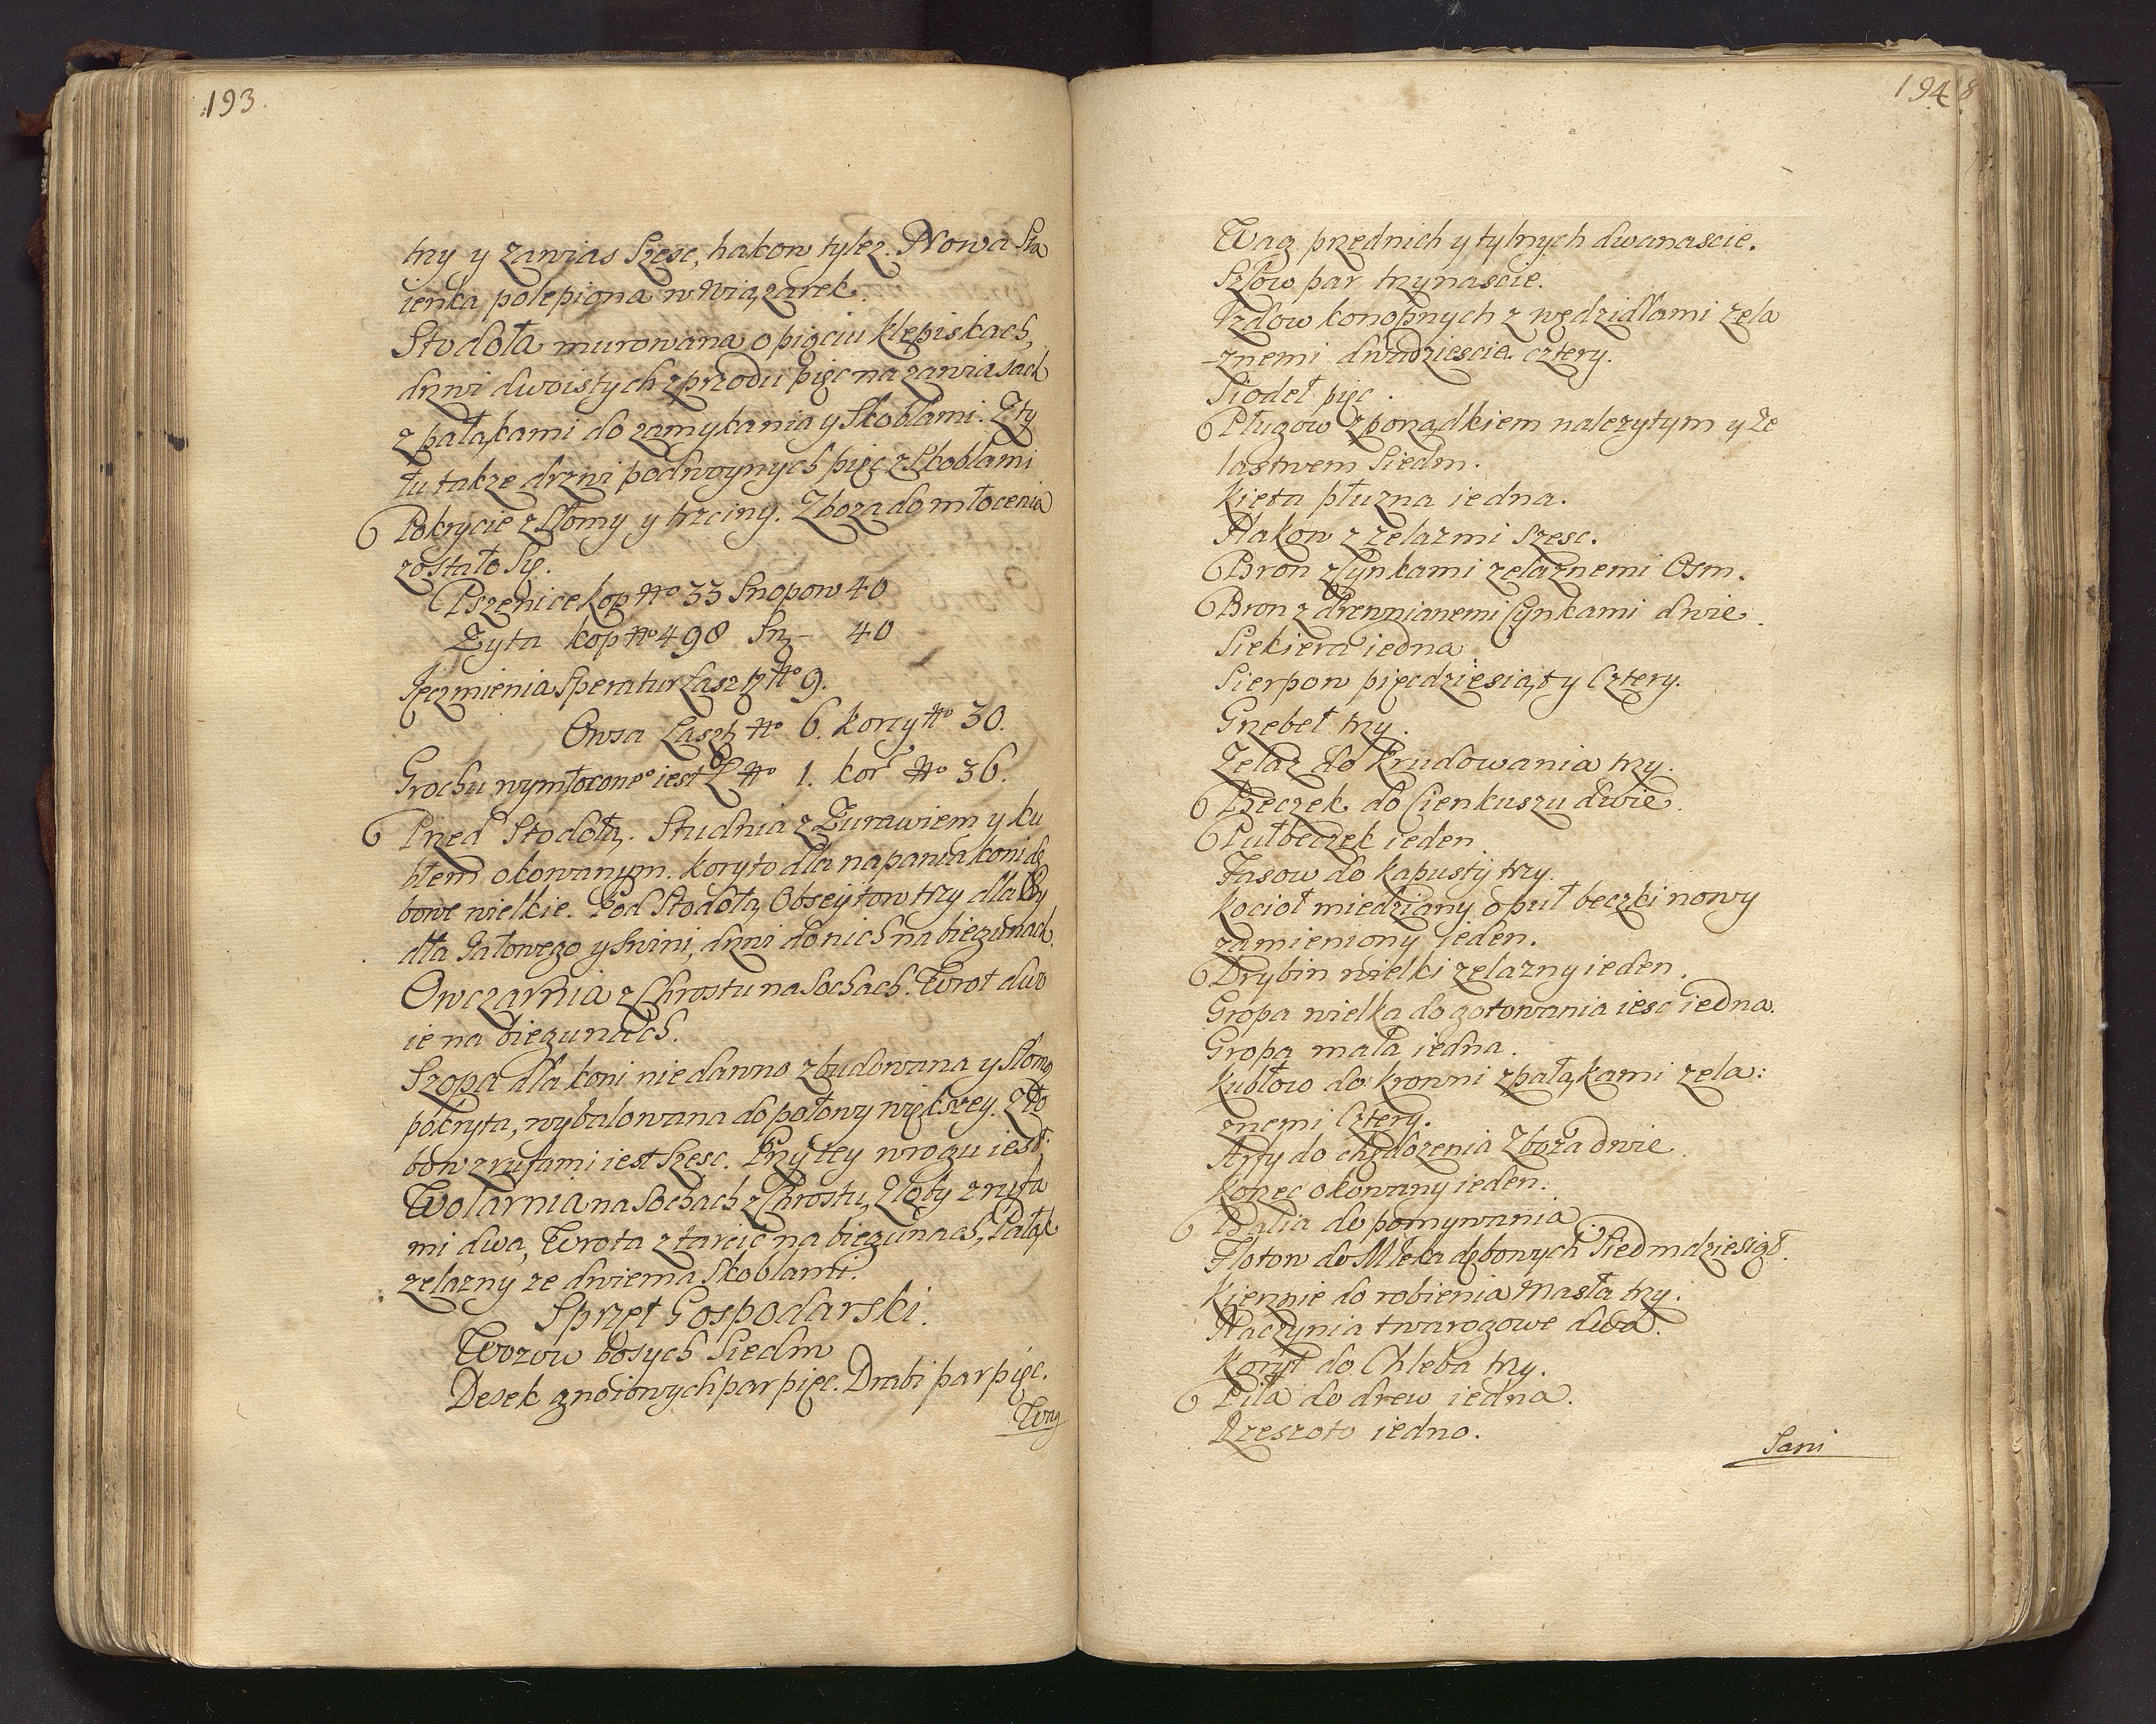 193
try y zawias Szesc, hakow tylez. Nowa Sta
ienka polepiona w Wiązarek.
Stodoła murowana o pięciu klepiskach,
drzwi dwoistych z przodu pięc na zawiasach
z pałąkami do zamykania y Skoblami. Z ty
łu takze drzwi podwoynych pięc z Skoblami
Pokrycie z Słomy y trzciny. Zboza do młocenia
zostało Się.
Pszenice kop No 33 Snopow 40
Zyta kop No 498 Sn – 40
Jęczmienia Speratur Łasz No 9.
Owsa Łasz No 6. korcy No 30.
Grochu wymłoconeo iest Ł No 1. kor No 36.
Przed Stodołą. Studnia z Zurawiem y ku
błem okowanym. koryto dla napania koni dę
bowe wielkie. Pod Stodołą Obseytow trzy dla By
dła Jałowego y Swini, drzwi do nich na biegunach.
Owczarnia z Chrostu na Sochach. Wrot dwo
ie na biegunach.
Szopa dla koni niedawno zbudowana y Słomą
pokryta, wybalowana do połowy większey. Zło
bow z rufami iest Szesc. Przy tey wrogu iest
Wolarnia na Sochach z Chrostu, Złoby z rufa
mi dwa, Wrota z tarcic na biegunach, Pałąk
zelazny ze dwiema Skoblami.
Sprzęt Gospodarski.
Wozow bosych Siedm
Desek gnoiowych par pięc. Drabi par pięc.
Wag
194 8
Wag przednich y tylnych dwanascie.
Szlow par trzynascie.
Uzdow konopnych z wędzidłami zela
znemi dwudziescie cztery.
Siodeł pięc.
Pługow z porządkiem nalezytym y Ze
lastwem Siedm.
Kięta płuzna iedna.
Hakow z zelazmi Szesc.
Bron z Cynkami zelaznemi Osm.
Bron z drewnianemi Cynkami dwie.
Siekiera iedna
Sierpow pięcdziesiąt y Cztery.
Grzebeł trzy.
Zelaz do krudowania trzy.
Beczek do Cienkuszu dwie.
Pułbeczek ieden.
Fasow do kapusty trzy.
Kocioł miedziany o puł beczki nowy
zamieniony ieden.
Drybin wielki zelazny ieden.
Gropa wielka do gotowania iesc iedna.
Gropa mała iedna.
Kubłow do krowni z pałąkami zela:
znemi Cztery.
Arfy do chędozenia Zboza dwie.
Korzec okowany ieden.
Balia do pomywania.
Flotow do Mleka dębowych Siedmdziesiąt.
Kierznie do robienia Masła trzy.
Naczynia twarogowe dwa.
Koryt do Chleba trzy.
Piła do drew iedna.
Rzeszoto iedno.
Sani